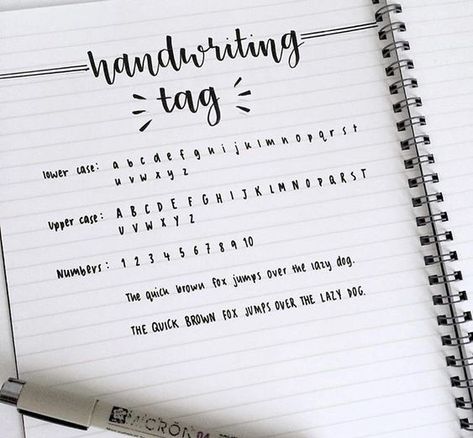 handwriting
tag
lower case: a b c d e f g h i j k l m n o p q r s t
u v w x y z
upper case: A B C D E F G H I J K L M N O P Q R S T
U V W X Y Z
Numbers: 1 2 3 4 5 6 7 8 9 10
The quick brown fox jumps over the lazy dog.
THE QUICK BROWN FOX JUMPS OVER THE LAZY DOG.
MICRON